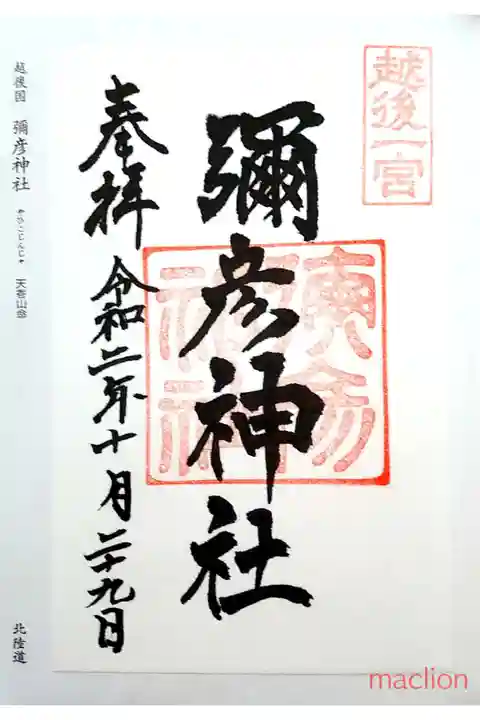 越後一宮
彌彦神社
奉拝
令和二年十月二十九日
越後国 彌彦神社 やひこじんじゃ 天香山命
北陸道
maclion